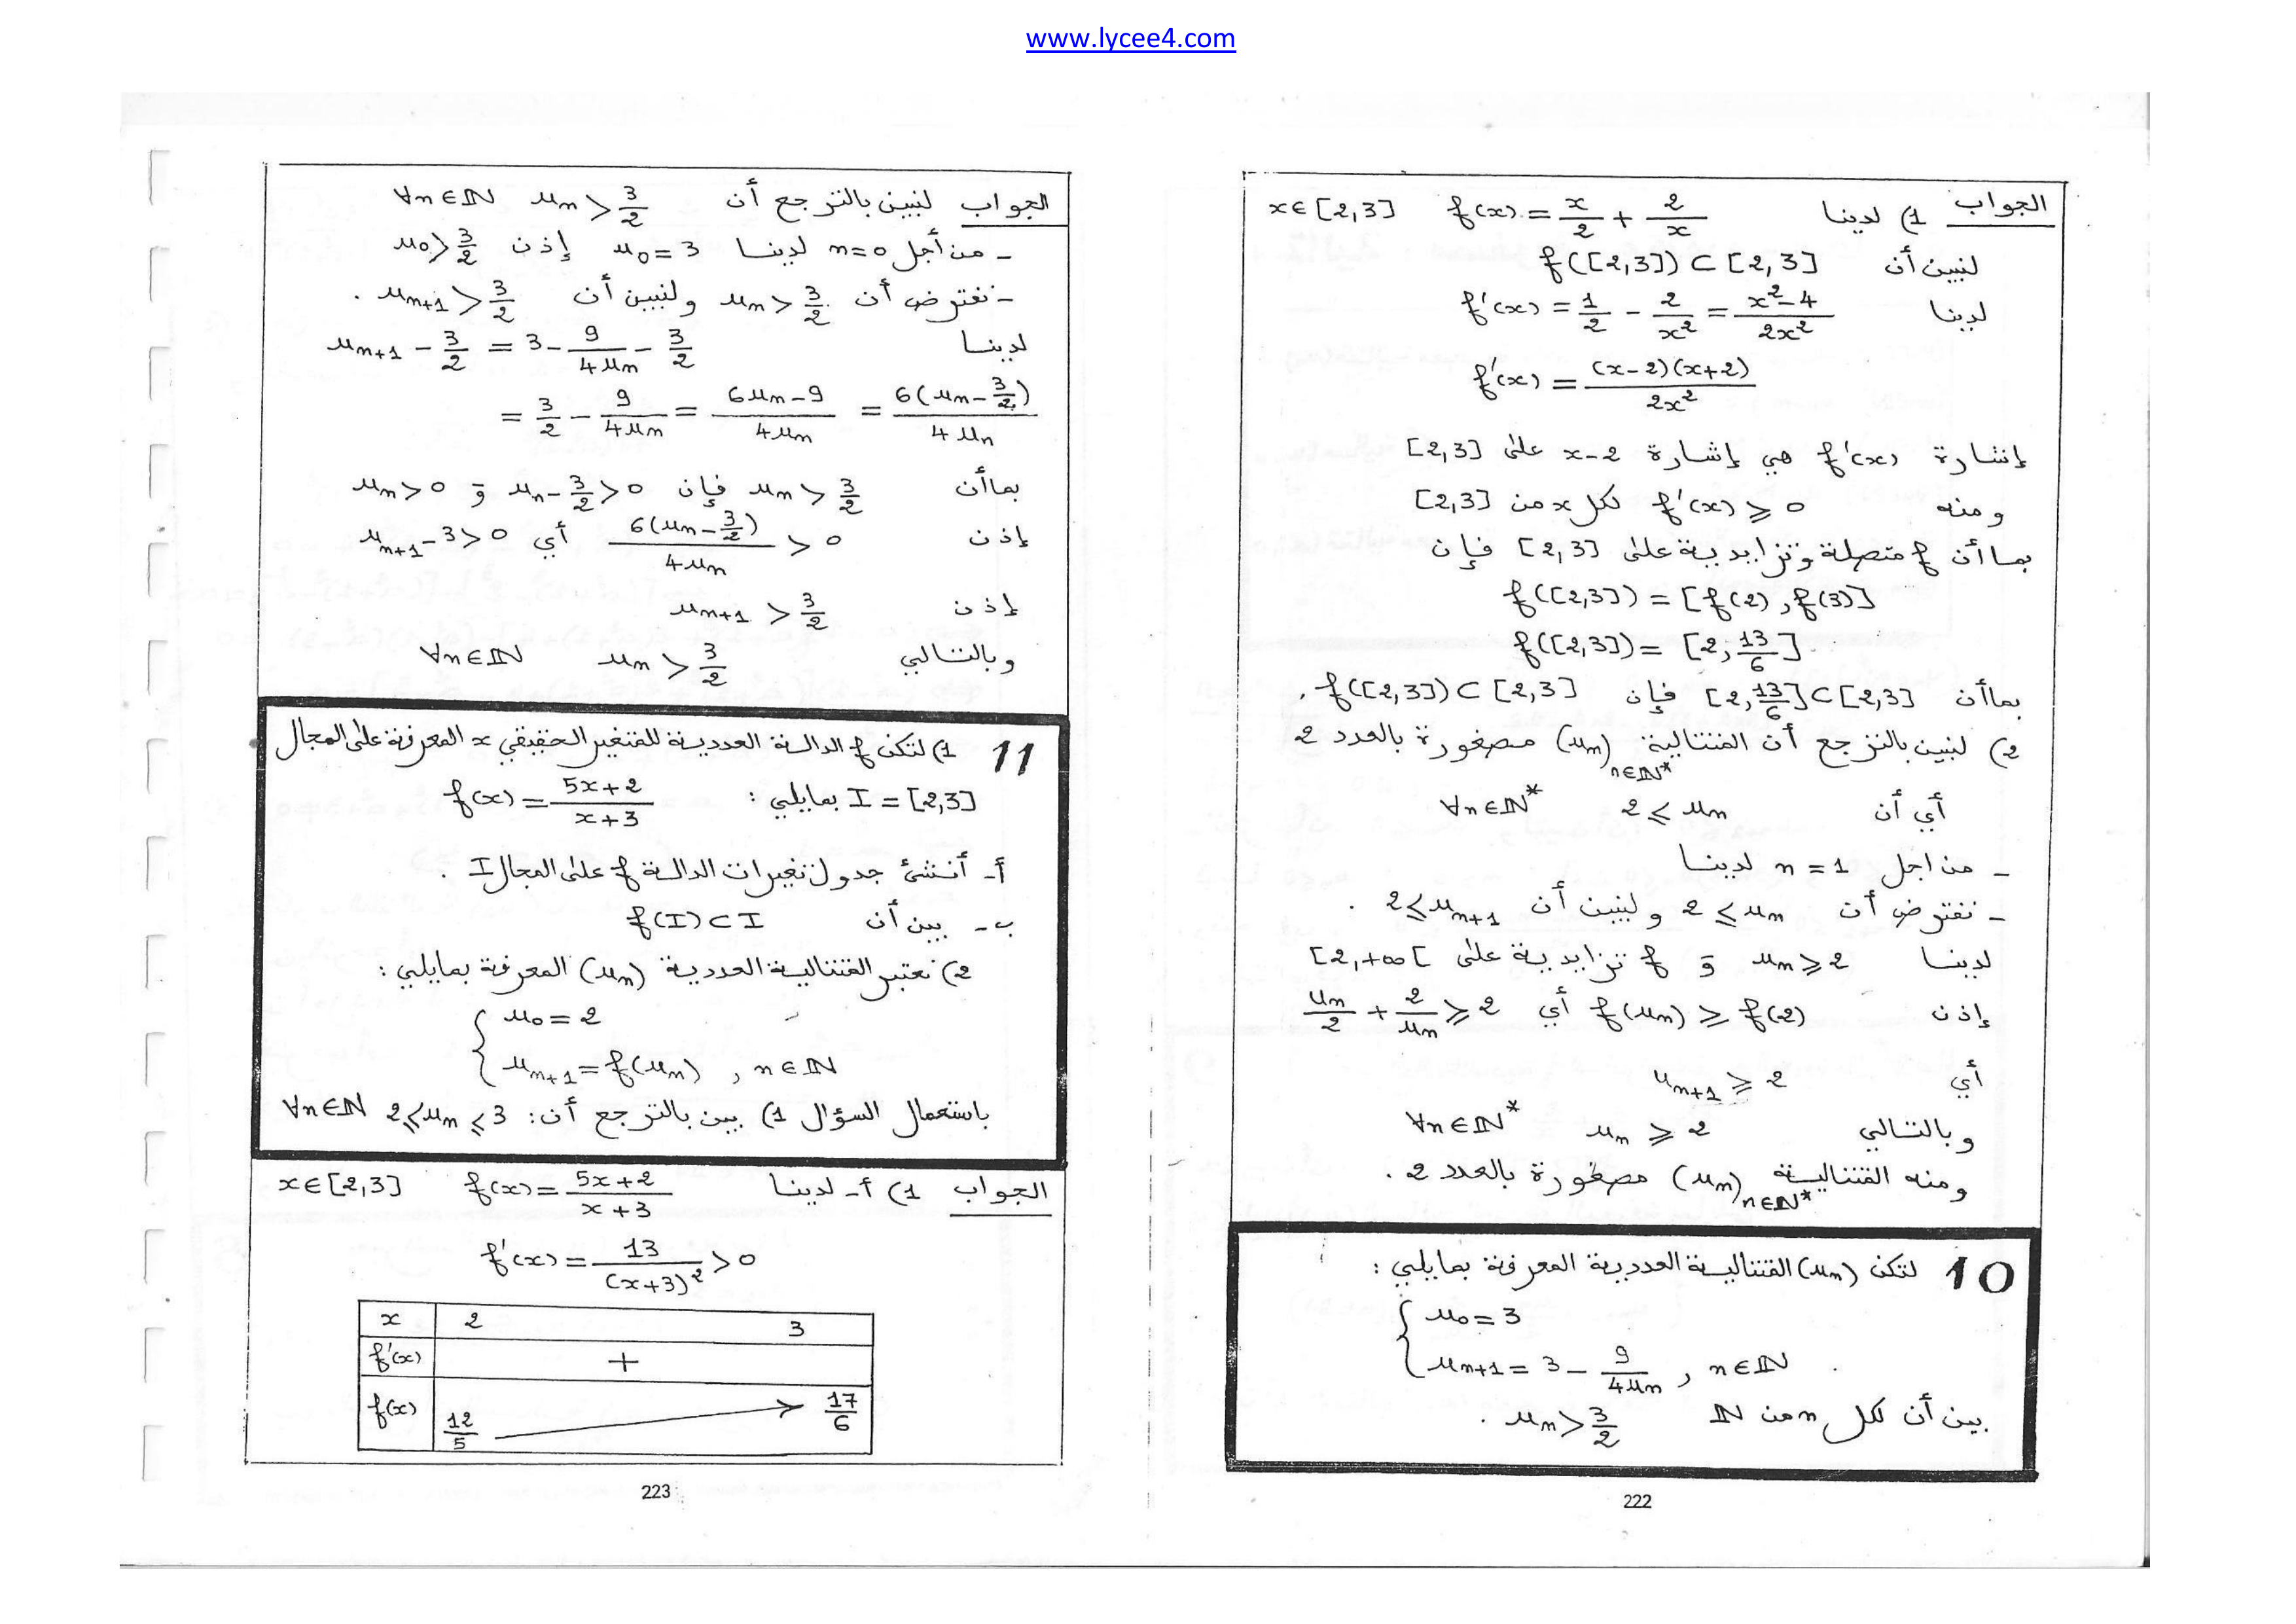 www.lycee4.com
الجواب 1) لدينا f(x) = x/2 + 2/x x∈[2,3]
لنبين أن f([2,3]) ⊂ [2,3]
لدينا f'(x) = 1/2 - 2/x² = (x²-4)/(2x²)
f'(x) = (x-2)(x+2)/(2x²)
إشارة f'(x) هي إشارة x-2 على [2,3]
ومنه f'(x) ⩾ 0 لكل x من [2,3]
بما أن f متصلة وتزايدية على [2,3] فإن
f([2,3]) = [f(2), f(3)]
f([2,3]) = [2, 13/6]
بما أن [2,13/6] ⊂ [2,3] فإن f([2,3]) ⊂ [2,3].
2) لنبين بالترجع أن المتتالية (uₙ)n∈ℕ* مصغورة بالعدد 2
أي أن 2 ⩽ uₙ ∀n∈ℕ*
- من اجل n = 1 لدينا
- نفترض أن 2 ⩽ uₙ ولنبين أن 2 ⩽ uₙ₊₁ .
لدينا uₙ ⩾ 2 و f تزايدية على [2,+∞[
إذن f(uₙ) ⩾ f(2) أي uₙ/2 + 2/uₙ ⩾ 2
أي uₙ₊₁ ⩾ 2
وبالتالي uₙ ⩾ 2 ∀n∈ℕ*
ومنه المتتالية (uₙ)n∈ℕ* مصغورة بالعدد 2 .
10 لتكن (uₙ) المتتالية العددية المعرفة بمايلي :
{ u₀ = 3
uₙ₊₁ = 3 - 9/(4uₙ) , n∈ℕ .
بين أن لكل n من ℕ uₙ > 3/2 .
222
الجواب لنبين بالترجع أن uₙ > 3/2 ∀n∈ℕ
- من أجل n=0 لدينا u₀ = 3 إذن u₀ > 3/2
- نفترض أن uₙ > 3/2 ولنبين أن uₙ₊₁ > 3/2 .
لدينا uₙ₊₁ - 3/2 = 3 - 9/(4uₙ) - 3/2
= 3/2 - 9/(4uₙ) = (6uₙ-9)/(4uₙ) = 6(uₙ-3/2)/(4uₙ)
بما أن uₙ > 3/2 فإن uₙ - 3/2 > 0 و uₙ > 0
إذن 6(uₙ-3/2)/(4uₙ) > 0 أي uₙ₊₁ - 3 > 0
إذن uₙ₊₁ > 3/2
وبالتالي uₙ > 3/2 ∀n∈ℕ
11 1) لتكن f الدالة العددية للمتغير الحقيقي x المعرفة على المجال
I = [2,3] بمايلي : f(x) = (5x+2)/(x+3)
أ- أنشئ جدول تغيرات الدالة f على المجال I .
ب- بين أن f(I) ⊂ I
2) نعتبر المتتالية العددية (uₙ) المعرفة بمايلي :
{ u₀ = 2
uₙ₊₁ = f(uₙ) , n∈ℕ
باستعمال السؤال 1) بين بالترجع أن : 2 ⩽ uₙ ⩽ 3 ∀n∈ℕ
الجواب 1) أ- لدينا f(x) = (5x+2)/(x+3) x∈[2,3]
f'(x) = 13/(x+3)² > 0
x 2 3
f'(x) +
f(x) 12/5 17/6
223